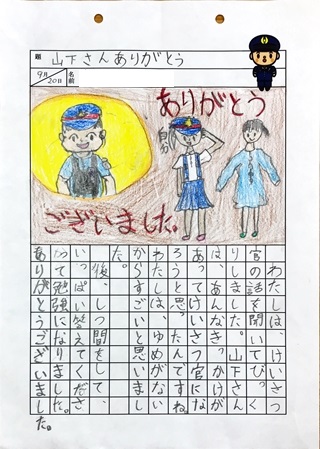 題 山下さんありがとう
9月20日
名前
ありがとう
自分
ございました。
わたしは、けいさつ
官の話を聞いてびっく
りしました。山下さん
は、あんなきっかけが
あってけいさつ官にな
ろうと思ったんですね。
わたしは、ゆめがない
からすごいと思いまし
た。
後、しつ間をして、
いっぱい答えてくださ
って勉強になりました。
ありがとうございました。